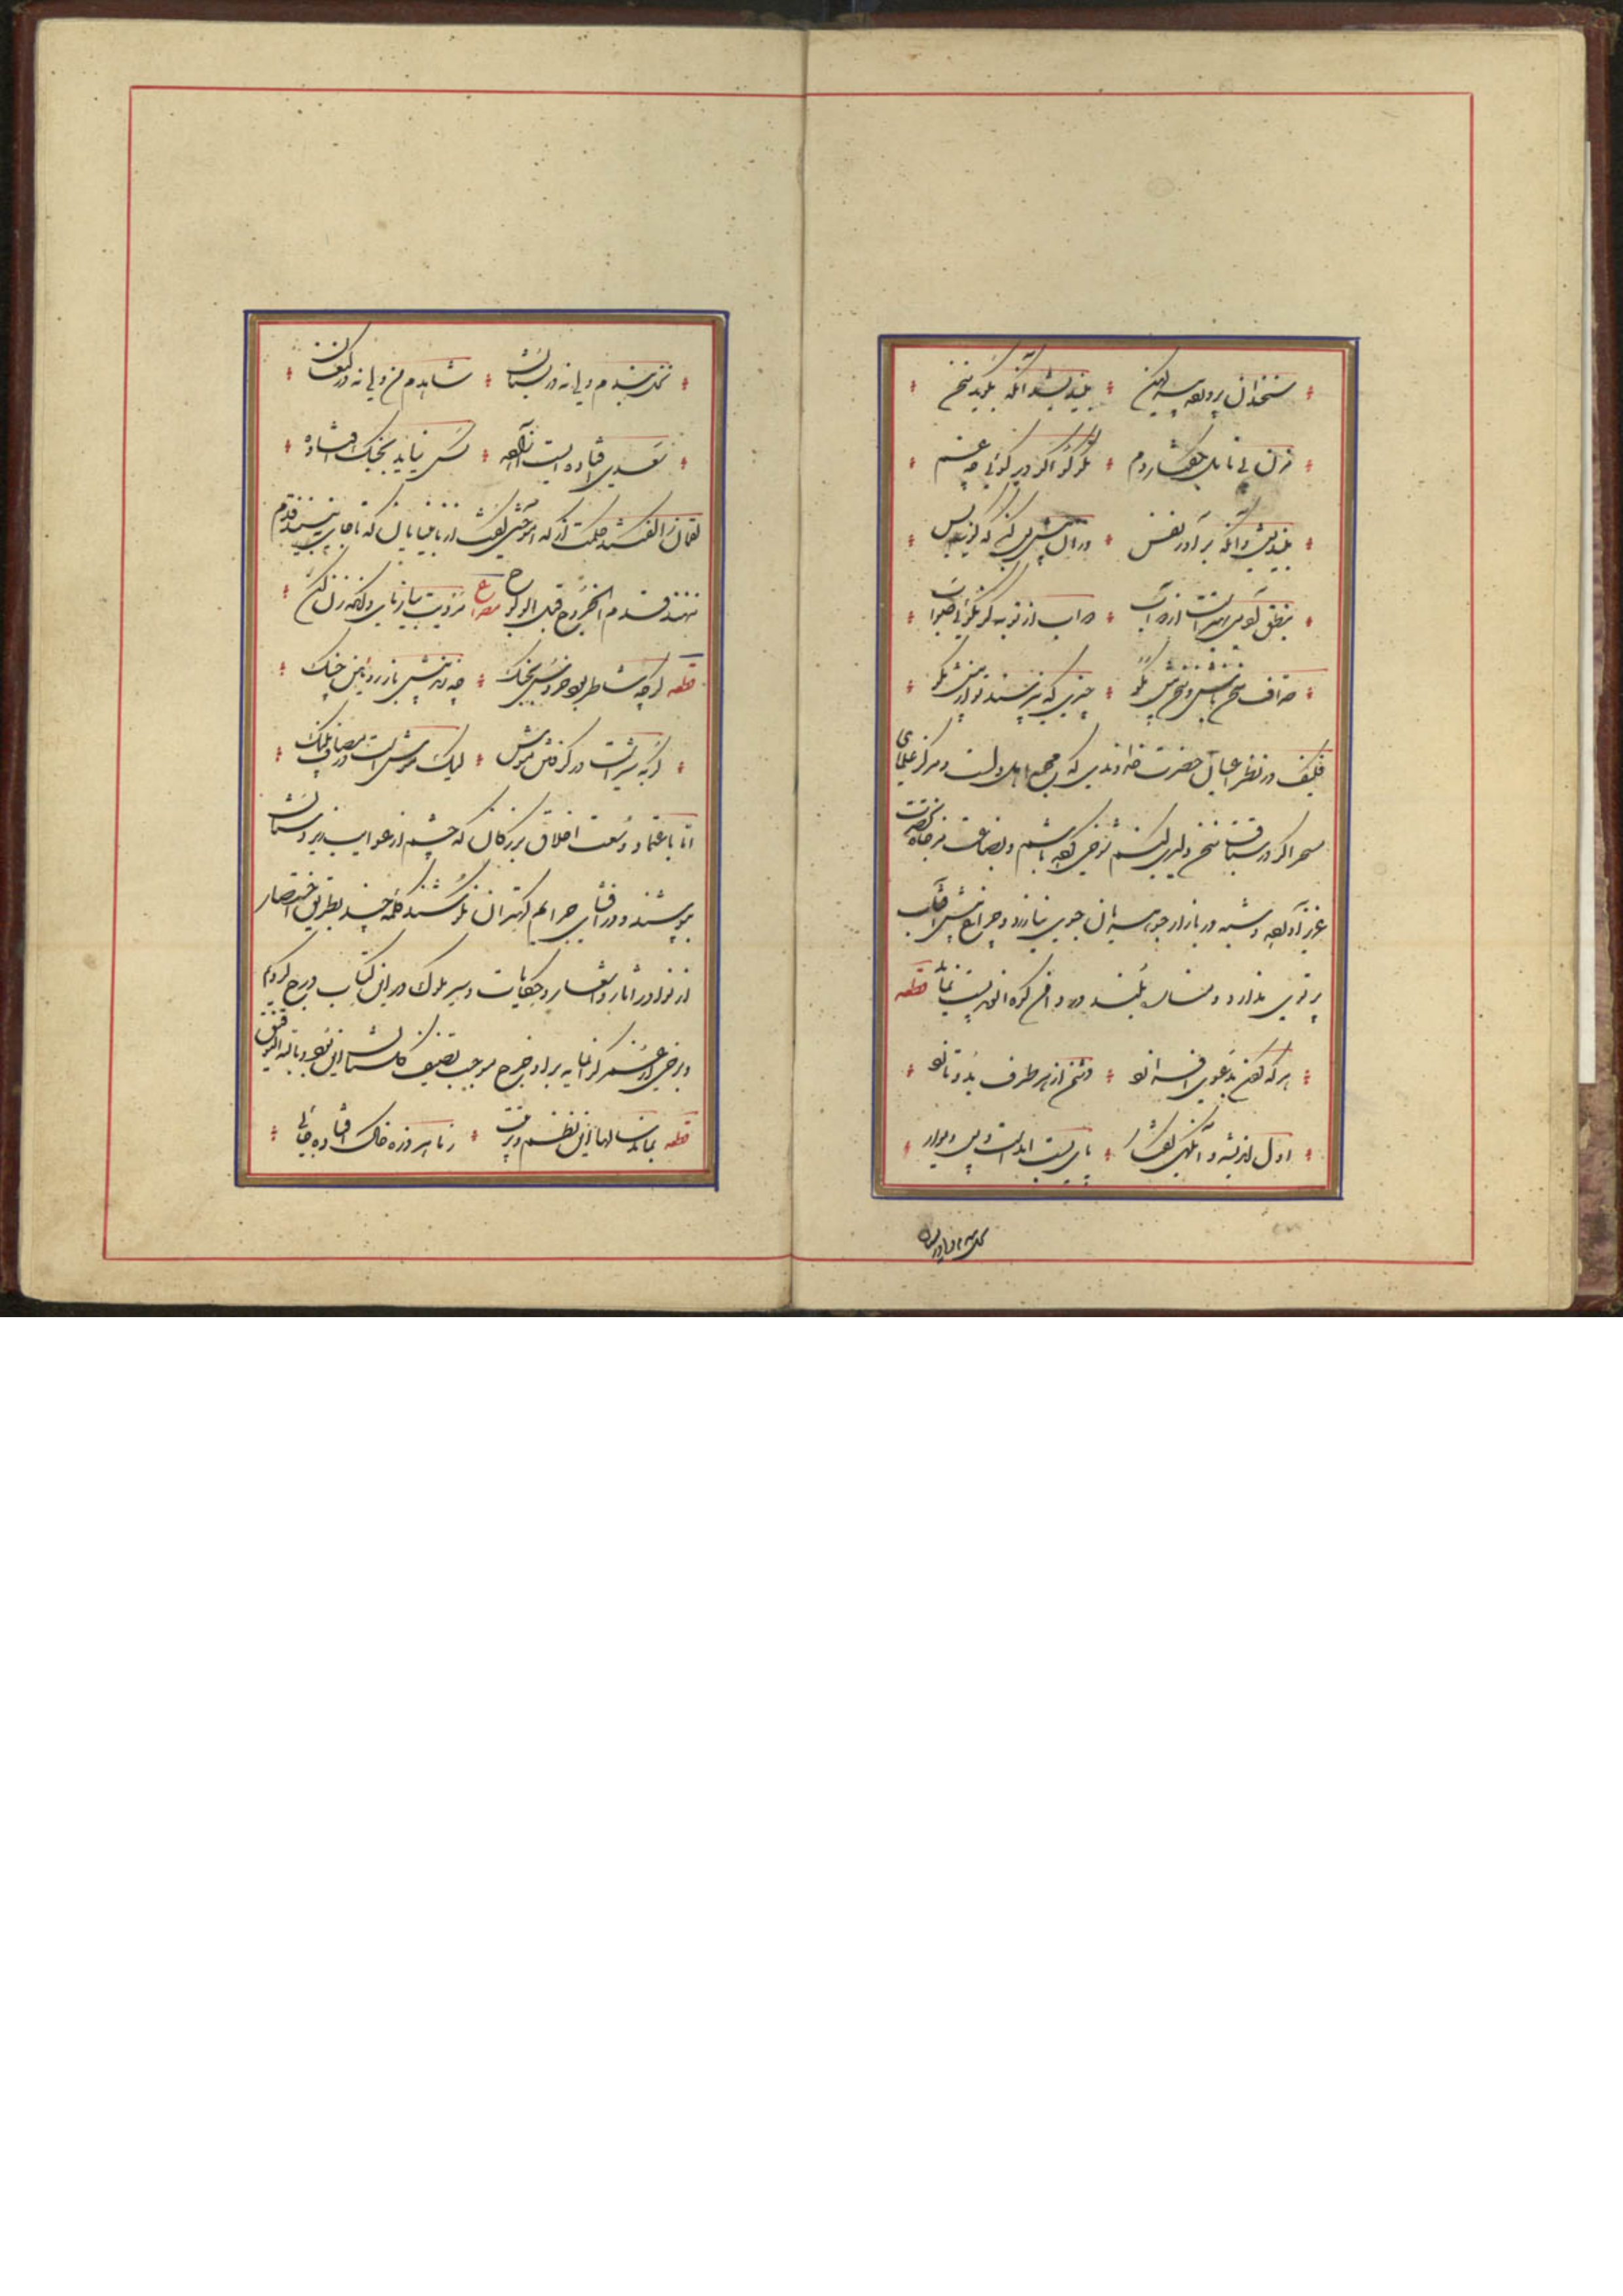 سخندان پرورده پیر کهن بیندیشد آنگه بگوید سخن
مزن بی تامل بگفتار دم نکو گو اگر دیر گوئی چه غم
بیندیش وانگه برآور نفس وزان پیش بس کن که گویند بس
بنطق آدمی بهتر است از دواب دواب از تو به گر نگوئی صواب
سخن پیش بگو چیزی که نپرسند تو از پیش مگو
فکیف در نظر اعیان حضرت خداوندی که مجمع اهل دلست و مرکز علمای
متبحر اگر در سیاقت سخن دلیری کنم شوخی کرده باشم و بضاعت مزجاة بحضرت
عزیز آورده و شبه در بازار جوهریان جوی نیارزد و چراغ پیش آفتاب
پرتوی ندارد و مناره بلند در دامن کوه الوند پست نماید قطعه
هر که گردن بدعوی افرازد دشمن از هر طرف بدو تازد
اول اندیشه وانگهی گفتار پای بست آمدست و پس دیوار
نخل بندم ولی نه در بستان
نخل بندم ولی نه در بستان شاهدم من ولی نه در کنعان
سعدی افتاده ایست آزاده کس نیاید بجنگ افتاده
لقمان را گفتند حکمت از که آموختی گفت از نابینایان که تا جای نبینند قدم
ننهند قدم الخروج قبل الولوج مصرع مردیت بیازمای وانگه زن کن
قطعه گرچه شاطر بود خروس بجنگ چه زند پیش باز روئین چنگ
گربه شیر است در گرفتن موش لیک موش است در مصاف پلنگ
اما باعتماد وسعت اخلاق بزرگان که چشم از عوایب زیردستان
بپوشند و در افشای جرایم کهتران نکوشند کلمه چند بطریق اختصار
از نوادر و آثار و اشعار و حکایات و سیر ملوک در این کتاب درج کردیم
و برخی از عمر گرانمایه بر او خرج موجب تصنیف گلستان این بود و بالله التوفیق
قطعه بماند سالها این نظم و ترتیب ز ما هر ذره خاک افتاده جائی